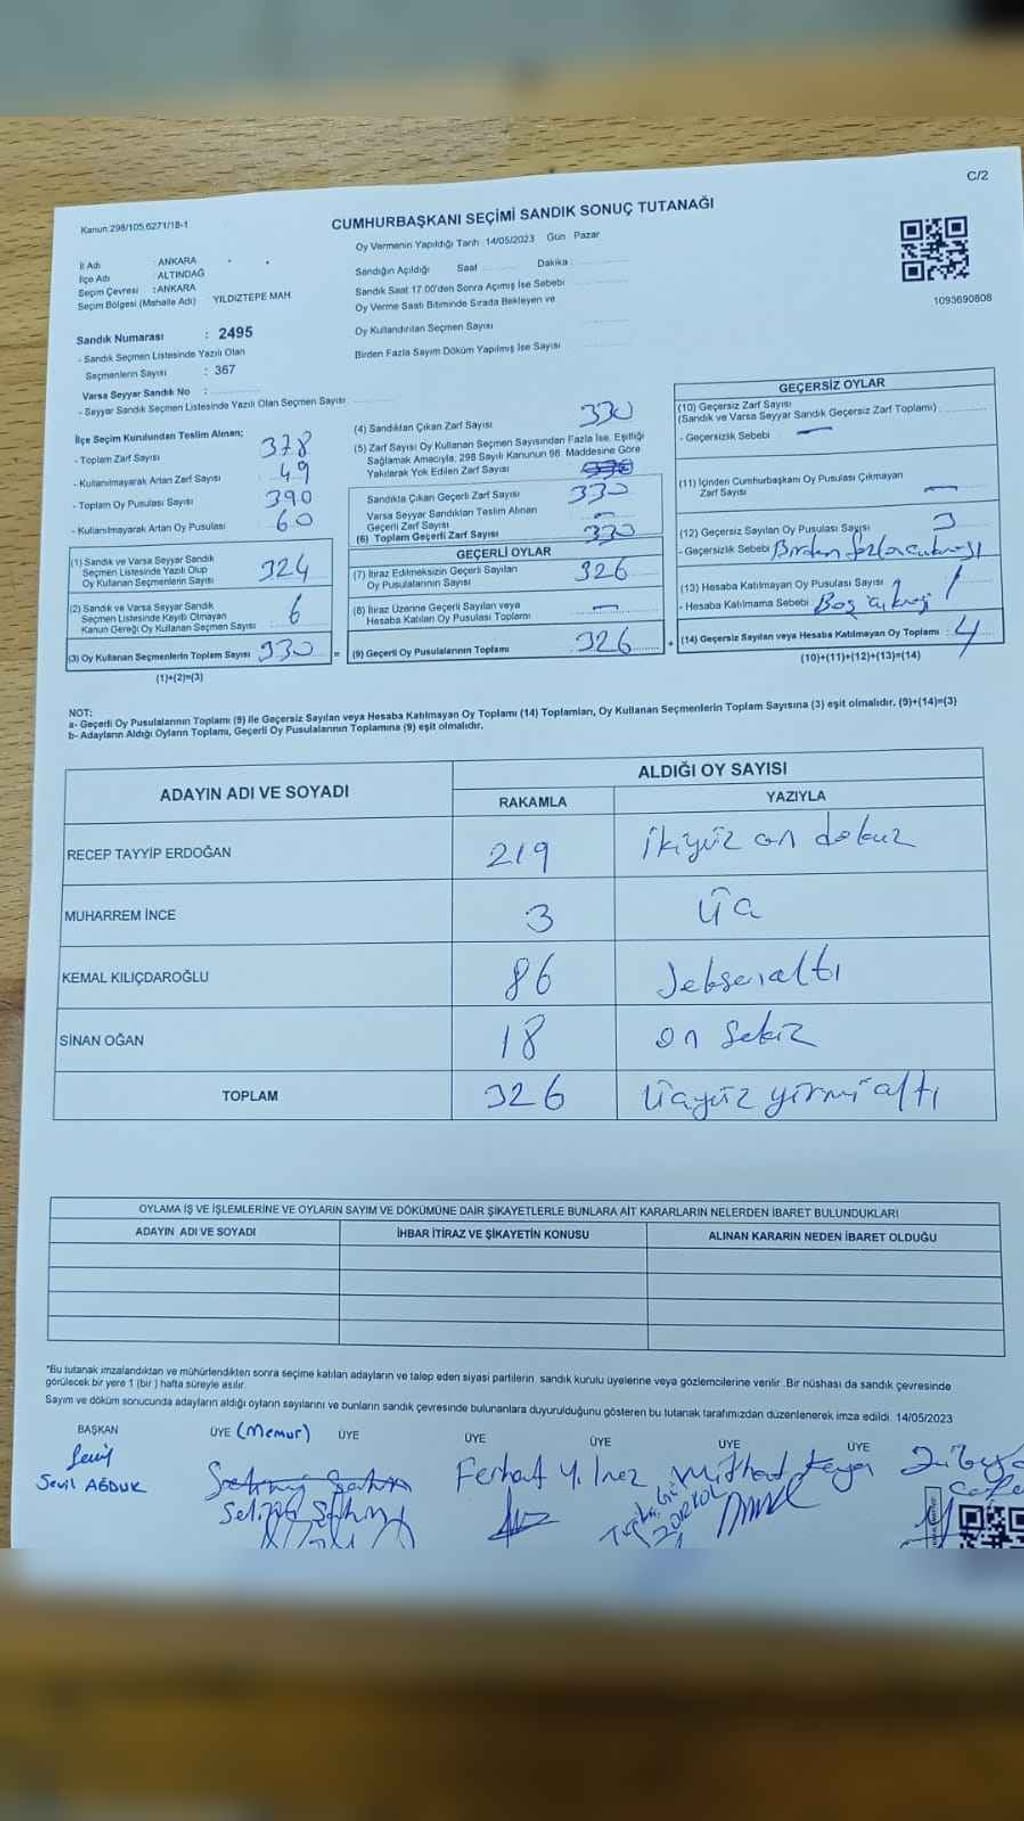 C/2
Kanun:298/105,6271/18-1
CUMHURBAŞKANI SEÇİMİ SANDIK SONUÇ TUTANAĞI
Oy Vermenin Yapıldığı Tarih 14/05/2023 Gün Pazar
İl Adı : ANKARA
İlçe Adı ALTINDAĞ
Seçim Çevresi : ANKARA
Seçim Bölgesi (Mahalle Adı) YILDIZTEPE MAH.
Sandığın Açıldığı Saat Dakika :
Sandık Saat 17.00'den Sonra Açımış İse Sebebi
Oy Verme Saati Bitiminde Sırada Bekleyen ve
Oy Kullandırılan Seçmen Sayısı
Birden Fazla Sayım Döküm Yapılmış İse Sayısı
1093690808
Sandık Numarası : 2495
- Sandık Seçmen Listesinde Yazılı Olan
Seçmenlerin Sayısı : 367
Varsa Seyyar Sandık No :
- Seyyar Sandık Seçmen Listesinde Yazılı Olan Seçmen Sayısı
İlçe Seçim Kurulundan Teslim Alınan;
- Toplam Zarf Sayısı 378
- Kullanılmayarak Artan Zarf Sayısı 49
- Toplam Oy Pusulası Sayısı 390
- Kullanılmayarak Artan Oy Pusulası 60
(1) Sandık ve Varsa Seyyar Sandık
Seçmen Listesinde Yazılı Olup
Oy Kullanan Seçmenlerin Sayısı 324
(2) Sandık ve Varsa Seyyar Sandık
Seçmen Listesinde Kayıtlı Olmayan
Kanun Gereği Oy Kullanan Seçmen Sayısı 6
(3) Oy Kullanan Seçmenlerin Toplam Sayısı 330 =
(1)+(2)=(3)
(4) Sandıktan Çıkan Zarf Sayısı 330
(5) Zarf Sayısı Oy Kullanan Seçmen Sayısından Fazla İse, Eşitliği
Sağlamak Amacıyla, 298 Sayılı Kanunun 98. Maddesine Göre
Yakılarak Yok Edilen Zarf Sayısı
Sandıkta Çıkan Geçerli Zarf Sayısı 330
Varsa Seyyar Sandıktan Teslim Alınan
Geçerli Zarf Sayısı –
(6) Toplam Geçerli Zarf Sayısı 330
GEÇERLİ OYLAR
(7) İtiraz Edilmeksizin Geçerli Sayılan
Oy Pusulalarının Sayısı 326
(8) İtiraz Üzerine Geçerli Sayılan veya
Hesaba Katılan Oy Pusulası Toplamı –
(9) Geçerli Oy Pusulalarının Toplamı 326 +
GEÇERSİZ OYLAR
(10) Geçersiz Zarf Sayısı
(Sandık ve Varsa Seyyar Sandık Geçersiz Zarf Toplamı)
- Geçersizlik Sebebi –
(11) İçinden Cumhurbaşkanı Oy Pusulası Çıkmayan
Zarf Sayısı –
(12) Geçersiz Sayılan Oy Pusulası Sayısı 3
- Geçersizlik Sebebi Birden fazla
(13) Hesaba Katılmayan Oy Pusulası Sayısı 1
- Hesaba Katılmama Sebebi Boş
(14) Geçersiz Sayılan veya Hesaba Katılmayan Oy Toplamı : 4
(10)+(11)+(12)+(13)=(14)
NOT:
a- Geçerli Oy Pusulalarının Toplamı (9) ile Geçersiz Sayılan veya Hesaba Katılmayan Oy Toplamı (14) Toplamları, Oy Kullanan Seçmenlerin Toplam Sayısına (3) eşit olmalıdır. (9)+(14)=(3)
b- Adayların Aldığı Oyların Toplamı, Geçerli Oy Pusulalarının Toplamına (9) eşit olmalıdır.
ADAYIN ADI VE SOYADI ALDIĞI OY SAYISI
RAKAMLA YAZIYLA
RECEP TAYYİP ERDOĞAN 219 ikiyüz on dokuz
MUHARREM İNCE 3 üç
KEMAL KILIÇDAROĞLU 86 Seksenaltı
SİNAN OĞAN 18 on sekiz
TOPLAM 326 üçyüz yirmi altı
OYLAMA İŞ VE İŞLEMLERİNE VE OYLARIN SAYIM VE DÖKÜMÜNE DAİR ŞİKAYETLERLE BUNLARA AİT KARARLARIN NELERDEN İBARET BULUNDUKLARI
ADAYIN ADI VE SOYADI İHBAR İTİRAZ VE ŞİKAYETİN KONUSU ALINAN KARARIN NEDEN İBARET OLDUĞU
*Bu tutanak imzalandıktan ve mühürlendikten sonra seçime katılan adayların ve talep eden siyasi partilerin, sandık kurulu üyelerine veya gözlemcilerine verilir. Bir nüshası da sandık çevresinde
görülecek bir yere 1 (bir) hafta süreyle asılır.
Sayım ve döküm sonucunda adayların aldığı oyların sayılarını ve bunların sandık çevresinde bulunanlara duyurulduğunu gösteren bu tutanak tarafımızdan düzenlenerek imza edildi. 14/05/2023
BAŞKAN ÜYE (Memur) ÜYE ÜYE ÜYE ÜYE ÜYE
Sevil AĞDUK
Ferhat Yılmaz Mithat Kaya